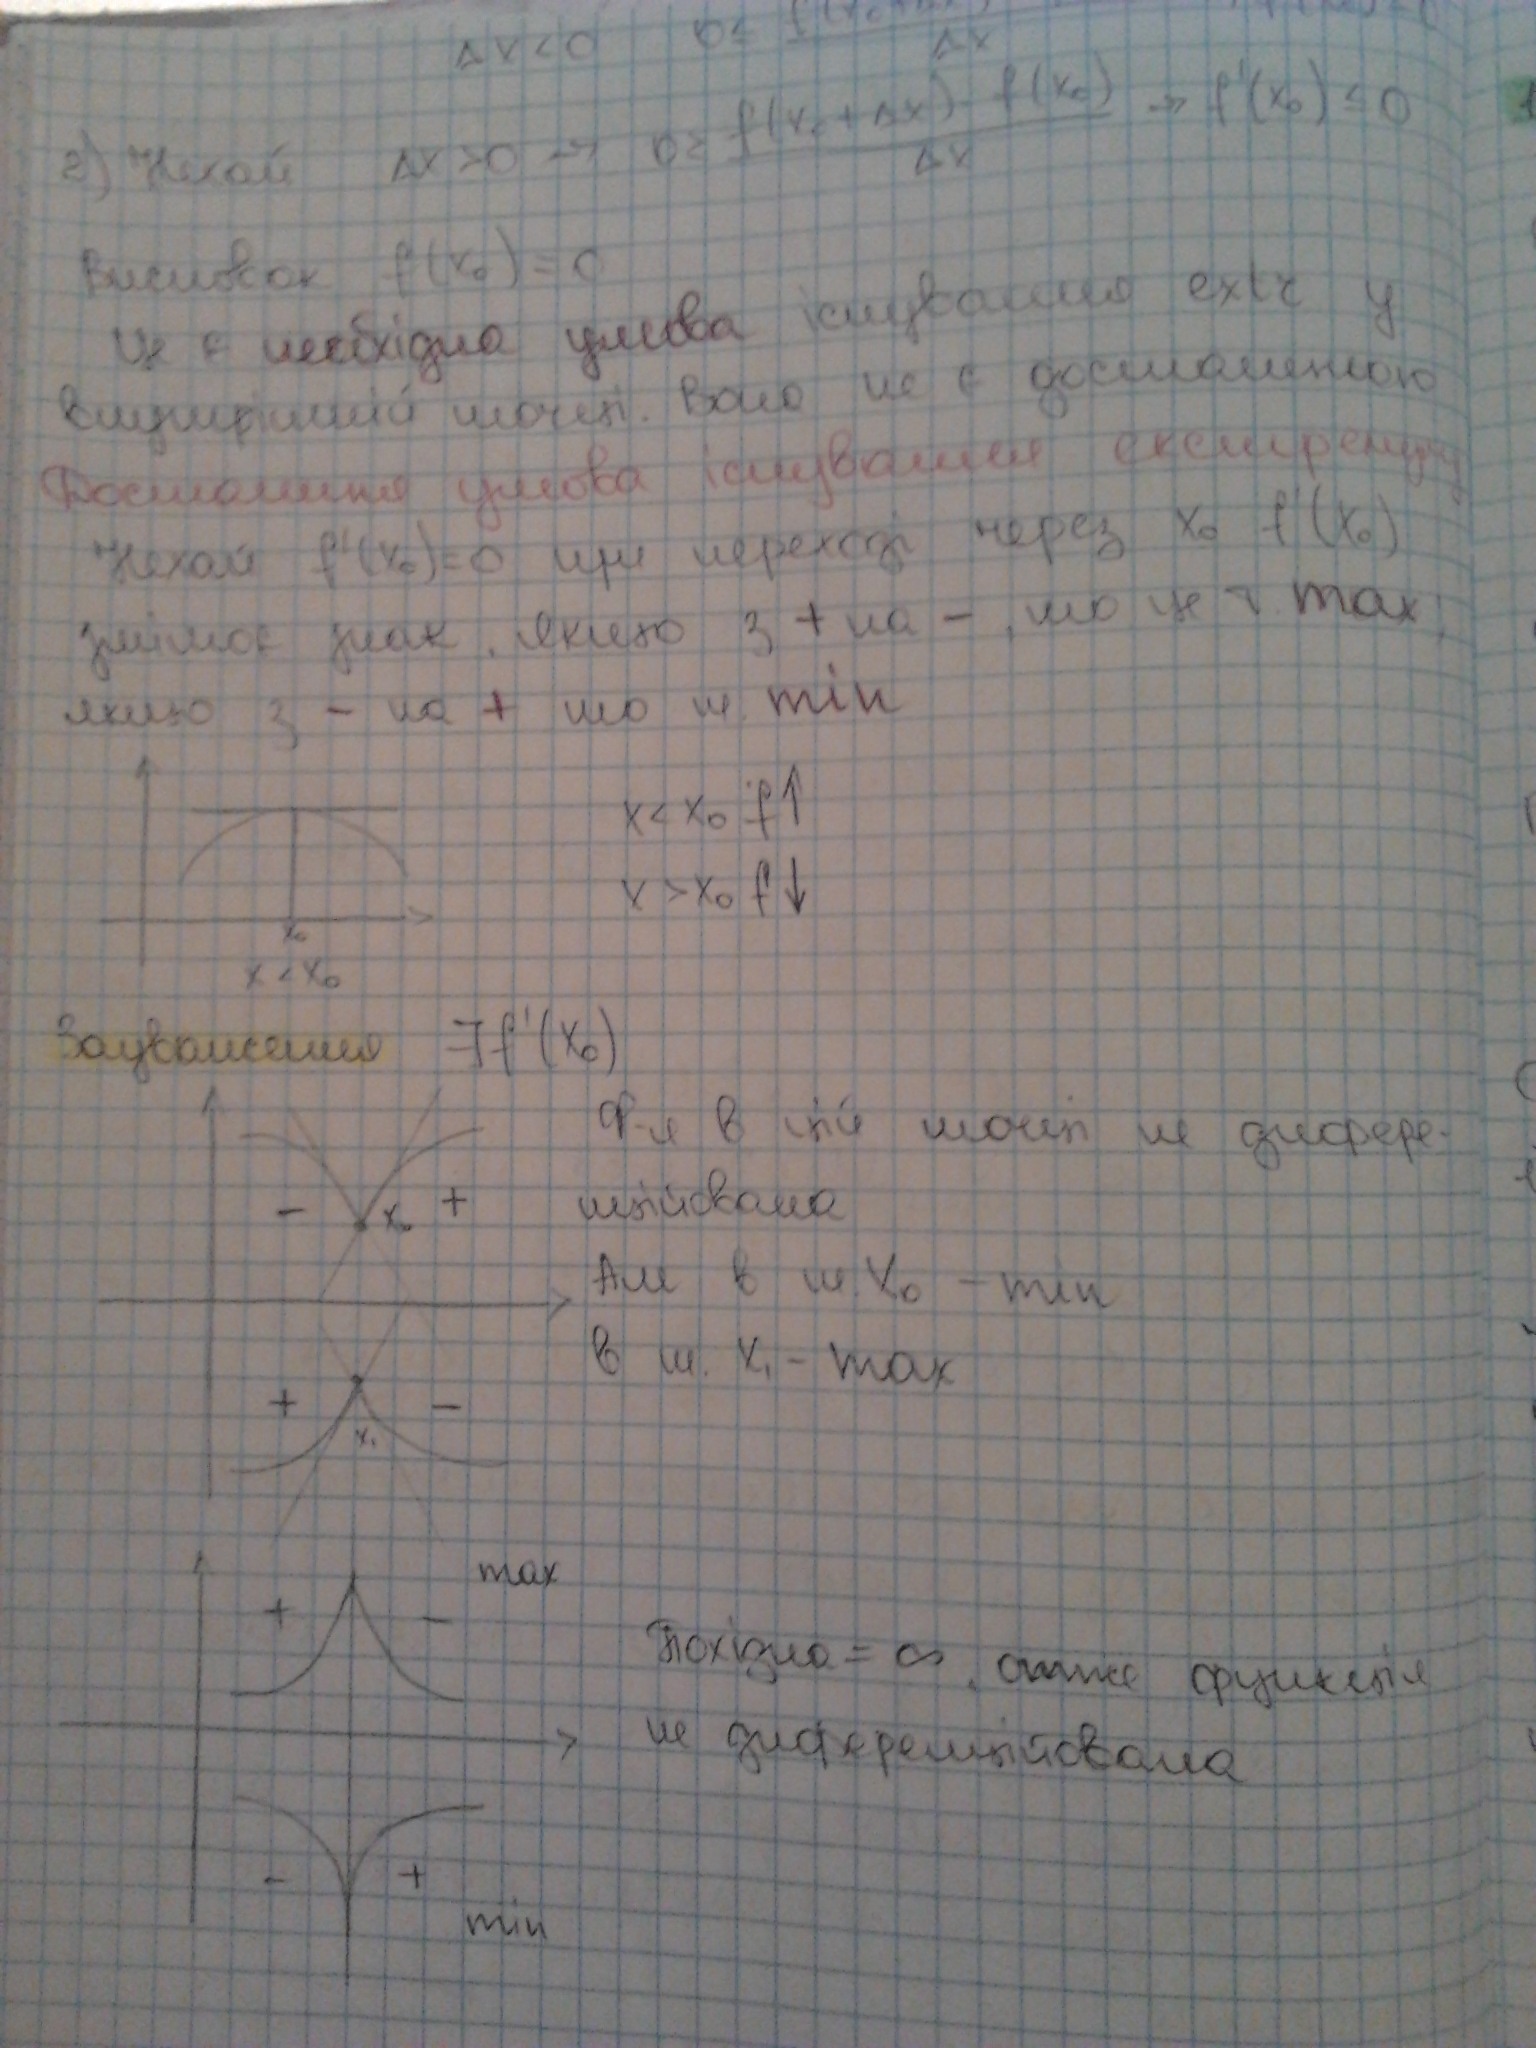 Δx<0 0≤ f(x₀+Δx) / Δx
2) Нехай Δx>0 → 0≥ f(x₀+Δx)-f(x₀) / Δx → f'(x₀)≤0
Висновок f(x₀)=0
Це є необхідна умова існування extr у
внутрішній точці. Вона не є достатньою
Достатня умова існування екстремуму
Нехай f'(x₀)=0 при переході через x₀ f'(x₀)
змінює знак, якщо з + на -, то це т. max,
якщо з - на + то т. min
x<x₀ f↑
x>x₀ f↓
x₀
x<x₀
Зауваження ∃f'(x₀)
Ф-я в цій точці не дифере-
нційована
- x₀ +
Але в т. x₀ - min
в т. x₁ - max
+ -
x₁
max
+ -
Похідна = ∞, отже функція
не диференційована
- +
min